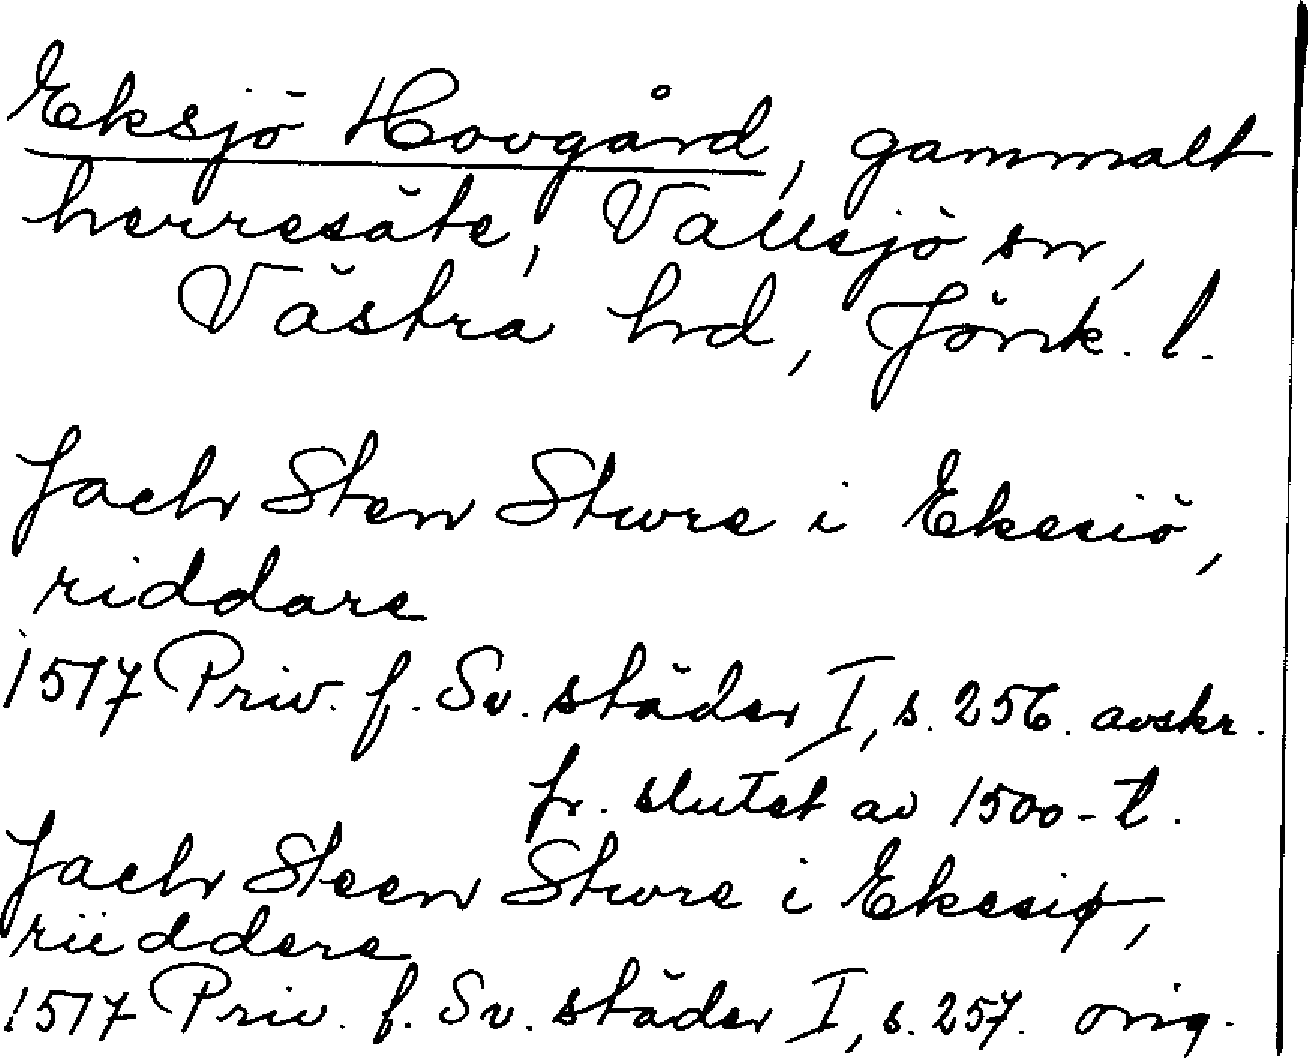 Eksjö Hovgård, gammalt
herresäte, Vallsjö sn,
Västra hd, Jönk. l.
Jach Sten Sture i Ekesiö,
riddare
1517 Priv. f. Sv. städer I, s. 256. avskr.
fr. slutet av 1500-t.
Jach Steen Sture i Ekesiø,
riiddere
1517 Priv. f. Sv. städer I, s. 257. orig.